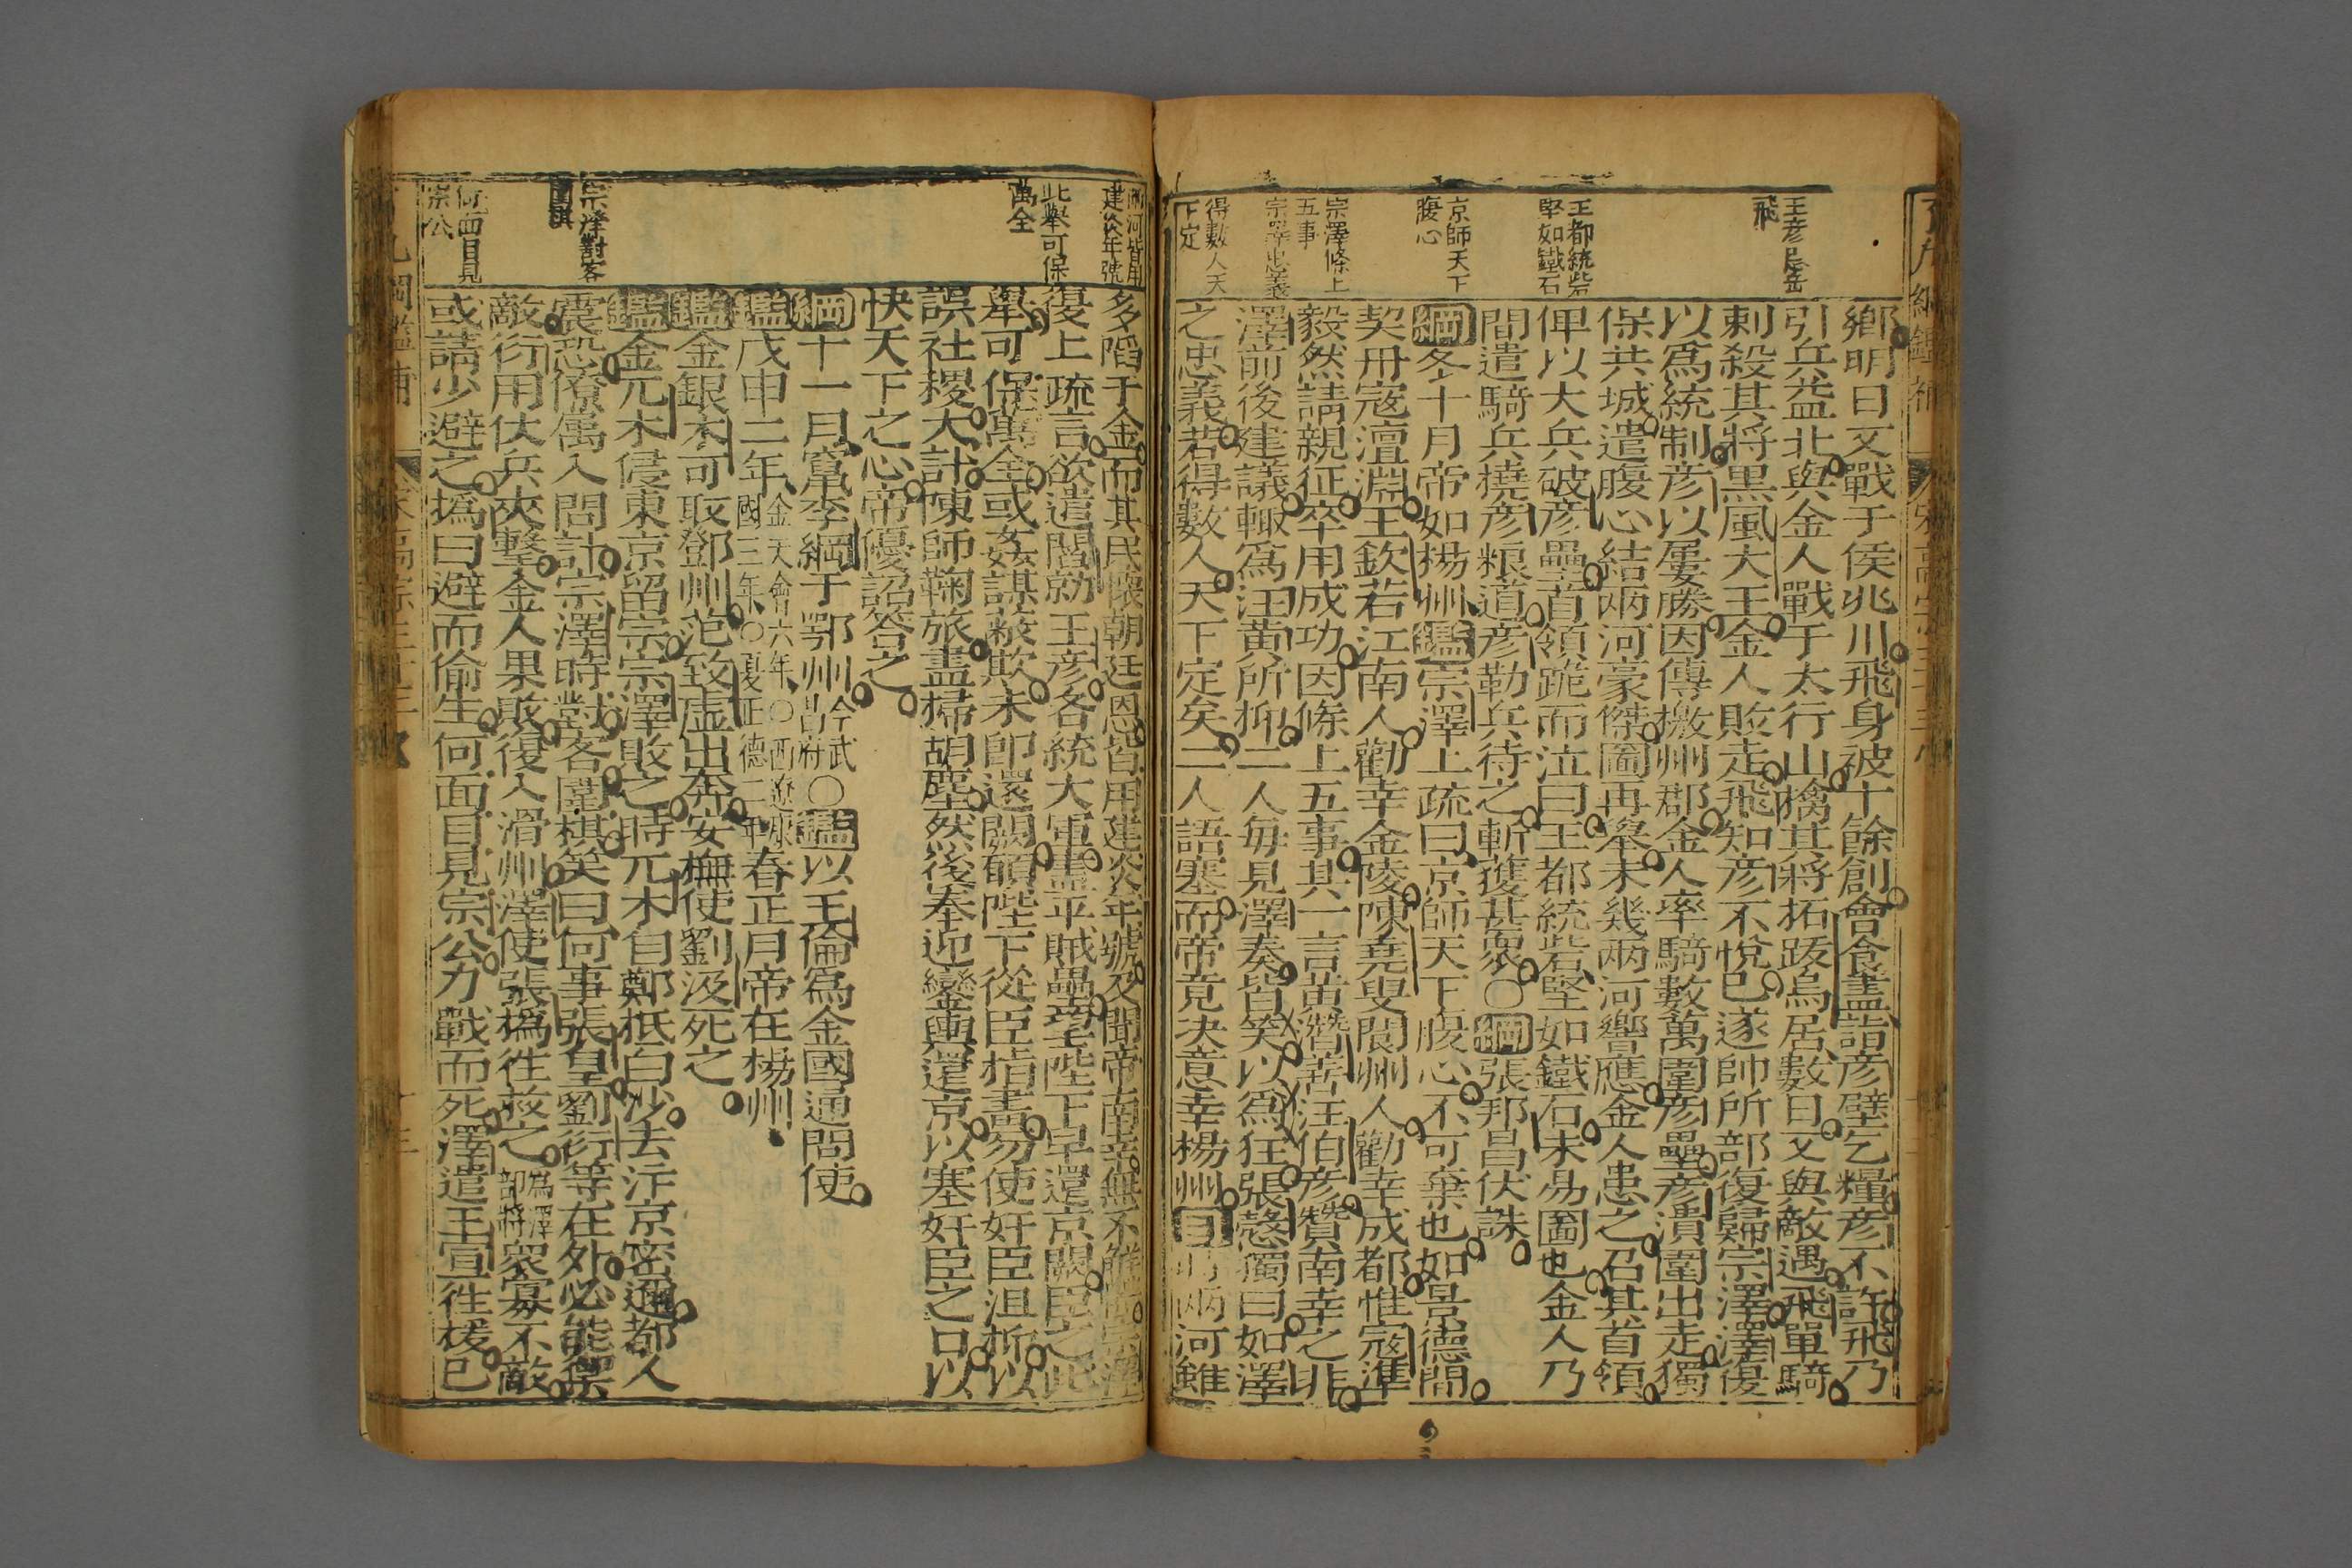 王彥忌岳
飛
王都統砦
堅如鐵石
京師天下
腹心
宗澤條上
五事
宗澤忠義
得數人天
下定
鄉明日又戰于侯兆川飛身被十餘創會食盡詣彥壁乞糧彥不許飛乃
引兵益北與金人戰于太行山擒其將拓跋烏居數日又與敵遇飛單騎
刺殺其將黑風大王金人敗走飛知彥不悅已遂帥所部復歸宗澤澤復
以爲統制彥以屢勝因傳檄州郡金人率騎數萬圍彥壘彥潰圍出走獨
保共城遣腹心結兩河豪傑圖再舉未幾兩河響應金人患之召其首領
俾以大兵破彥壘首領跪而泣曰王都統砦堅如鐵石未易圖也金人乃
間遣騎兵撓彥粮道彥勒兵待之斬獲甚衆〇綱張邦昌伏誅
綱冬十月帝如楊州鑑宗澤上疏曰京師天下腹心不可棄也如景德間
契丹寇澶淵王欽若江南人勸幸金陵陳堯叟閬州人勸幸成都惟寇準
毅然請親征卒用成功因條上五事其一言黃潛善汪伯彥贊南幸之非
澤前後建議輙爲汪黃所抑二人每見澤奏皆笑以爲狂張慤獨曰如澤
之忠義若得數人天下定矣二人語塞而帝竟决意幸楊州目時兩河雖
兩河皆用
建炎年號
此舉可保
萬全
宗澤對客
圍棋
何面目見
宗公
多陷于金而其民懷朝廷恩皆用建炎年號及聞帝南幸無不解體宗澤
復上疏言欲遣閭勍王彥各統大軍盡平賊壘望陛下早還京闕臣之此
舉可保萬全或姦謀蔽欺未卽還闕願陛下從臣措畫勿使奸臣沮抑以
誤社稷大計陳師鞠旅盡掃胡塵然後奉迎鑾輿還京以塞奸臣之口以
快天下之心帝優詔答之
綱十一月竄李綱于鄂州今武昌府〇鑑以王倫爲金國通問使
鑑戊申二年金天會六年〇西遼康國三年〇夏正德二年春正月帝在楊州
鑑金銀术可取鄧州范致虛出奔安撫使劉汲死之
鑑金兀术侵東京留宗宗澤敗之時兀术自鄭抵白沙去汴京密邇都人
震恐僚屬入問計宗澤時對客圍棋笑曰何事張皇劉衍等在外必能禦
敵衍用伏兵夾擊金人果敗復入滑州澤使張撝徃救之爲澤部將衆寡不敵
或請少避之撝曰避而偷生何面目見宗公力戰而死澤遣王宣徃援已